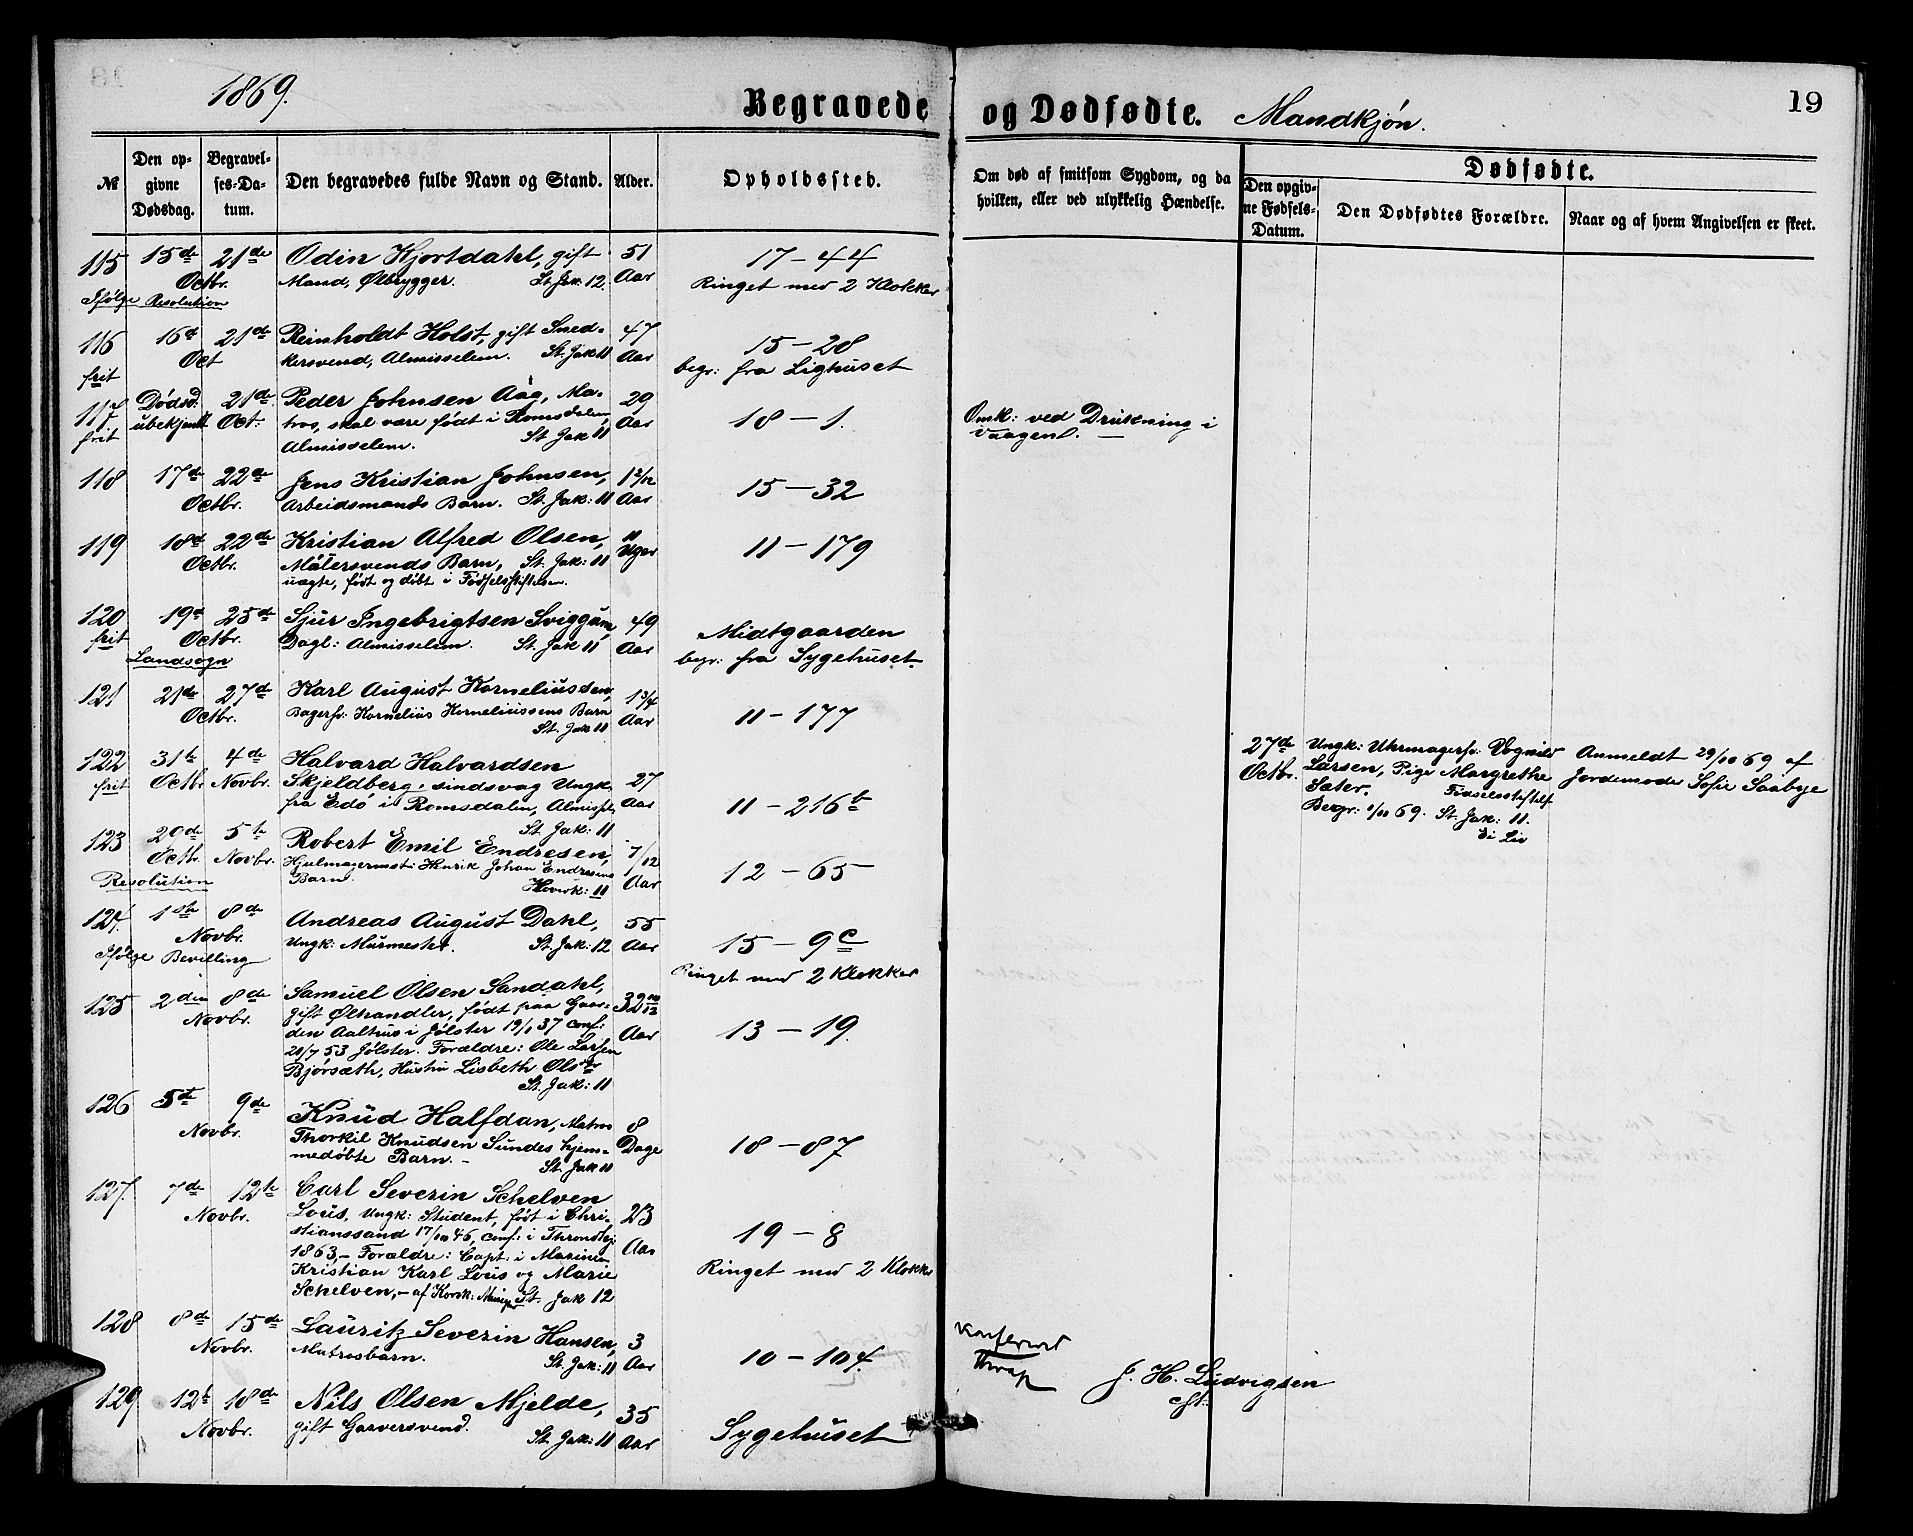 1869.
Begravede og Dødfødte. Mandkjøn.
19
№
Den opgivne Dødsdag.
Begravelses-Datum.
Den begravedes fulde Navn og Stand.
Alder.
Opholdssted.
Om død af smitsom Sygdom, og da hvilken, eller ved ulykkelig Hændelse.
Dødfødte.
Den opgivne Fødsels-Datum.
Den Dødfødtes Forældre.
Naar og af hvem Angivelsen er skeet.
115 15de 21de Odin Hjortdahl, gift 51 17-44
Octbr. Mand, Ølbrygger. St. Jak: 12. Aar Ringet med 2 Klokker
Ifølge Resolution
116 16d 21de Reinholdt Holst, gift Sned- 47 15-28
Oct kersvend, Almisselem. St. Jak 11 Aar begr: fra Lighuset
frit
117 Dødsd. 21de Peder Johnsen Aag, Ma- 29 18-1. Omk: ved Drukning i
frit ubekjendt Oct: tros, skal være født i Romsdalen, Aar Vaagen.
Almisselem. St. Jak 11
118 17de 22de Jens Kristian Johnsen, 1 2/12 15-32
Octbr. Arbeidsmands Barn. St. Jak: 11 Aar
119 18d 22de Kristian Alfred Olsen, 11 11-179
Octbr. Målersvends Barn, St. Jak: 11 Uger
uægte, født og døbt i Fødselsstiftelsen.
120 19d 25de Sjur Ingebrigtsen Sviggum, 49 Midtgaarden
frit Octbr. Dagl: Almisselem. St. Jak 11 Aar begr: fra Sygehuset.
Landsogn
121 21de 27de Karl August Korneliussen, 1 3/4 11-177
Octbr. Bagersv: Kornelius Korneliussens Barn Aar
St. Jak: 11
122 31te 4de Halvard Halvardsen
frit Octbr Novbr. Skjeldberg, sindsvag Ungk. 27
fra Edø i Romsdalen, Almissel. Aar 11-216b
St. Jak: 11
27de Ungk: Uhrmagersv: Vognild Anmeldt 29/10 69 af
Octbr. Larsen, Pige Margrethe Jordemode Sofie Saabye
Sæter. Fødselsstiftels
Begr: 1/11 69. St. Jak: 11.
Ei Liv
123 29de 5te Robert Emil Endresen, 7/12
Octbr Novbr. Hjulmagermst: Henrik Johan Endresens Aar 12-65
Resolution Barn. Korsk: 11
124. 1ste 8de Andreas August Dahl, 55
Novbr. Ungk: Murmester. St. Jak: 12 Aar 15-9c
Ifølge Bevilling Ringet med 2 Klokker
125 2den 8de Samuel Olsen Sandahl,
Novbr. gift Ølhandler, født paa Gaar- 32 10/12
den Aalhus i Jølster 19/1 37 conf: Aar 13-19.
21/7 53 Jølster. Forældre: Ole Larsen
Bjørsæth, Hustru Lisbeth Olsdtr
St. Jak: 11
126 5te 9de Knud Halfdan, Matros 8
Novbr. Thorkil Knudsen Sundes hjem- Dage 18-87
medøbte Barn. - St. Jak 11
127. 7de 12te Carl Severin Schelven
Novbr. Lous, Ungk: Student, født i Chri- 23
stianssand 17/10 46, conf: i Throndhj: 19-8
1863,- Forældre: Capt: i Marinen Aar
Kristian Karl Lous og Marie Ringet med 2 Klokker
Schelven,- af Korsk: Menigh St. Jak 12
128 8de 15de Lauritz Severin Hansen, 3 10-104.
Novbr. Matrosbarn. St. Jak: 11 Aar
Konfereret
J. H. Ludvigsen
cst.
129 12te 18de Nils Olsen Mjelde, 35
Novbr. gift Garversvend. St. Jak: 11 Aar Sygehuset